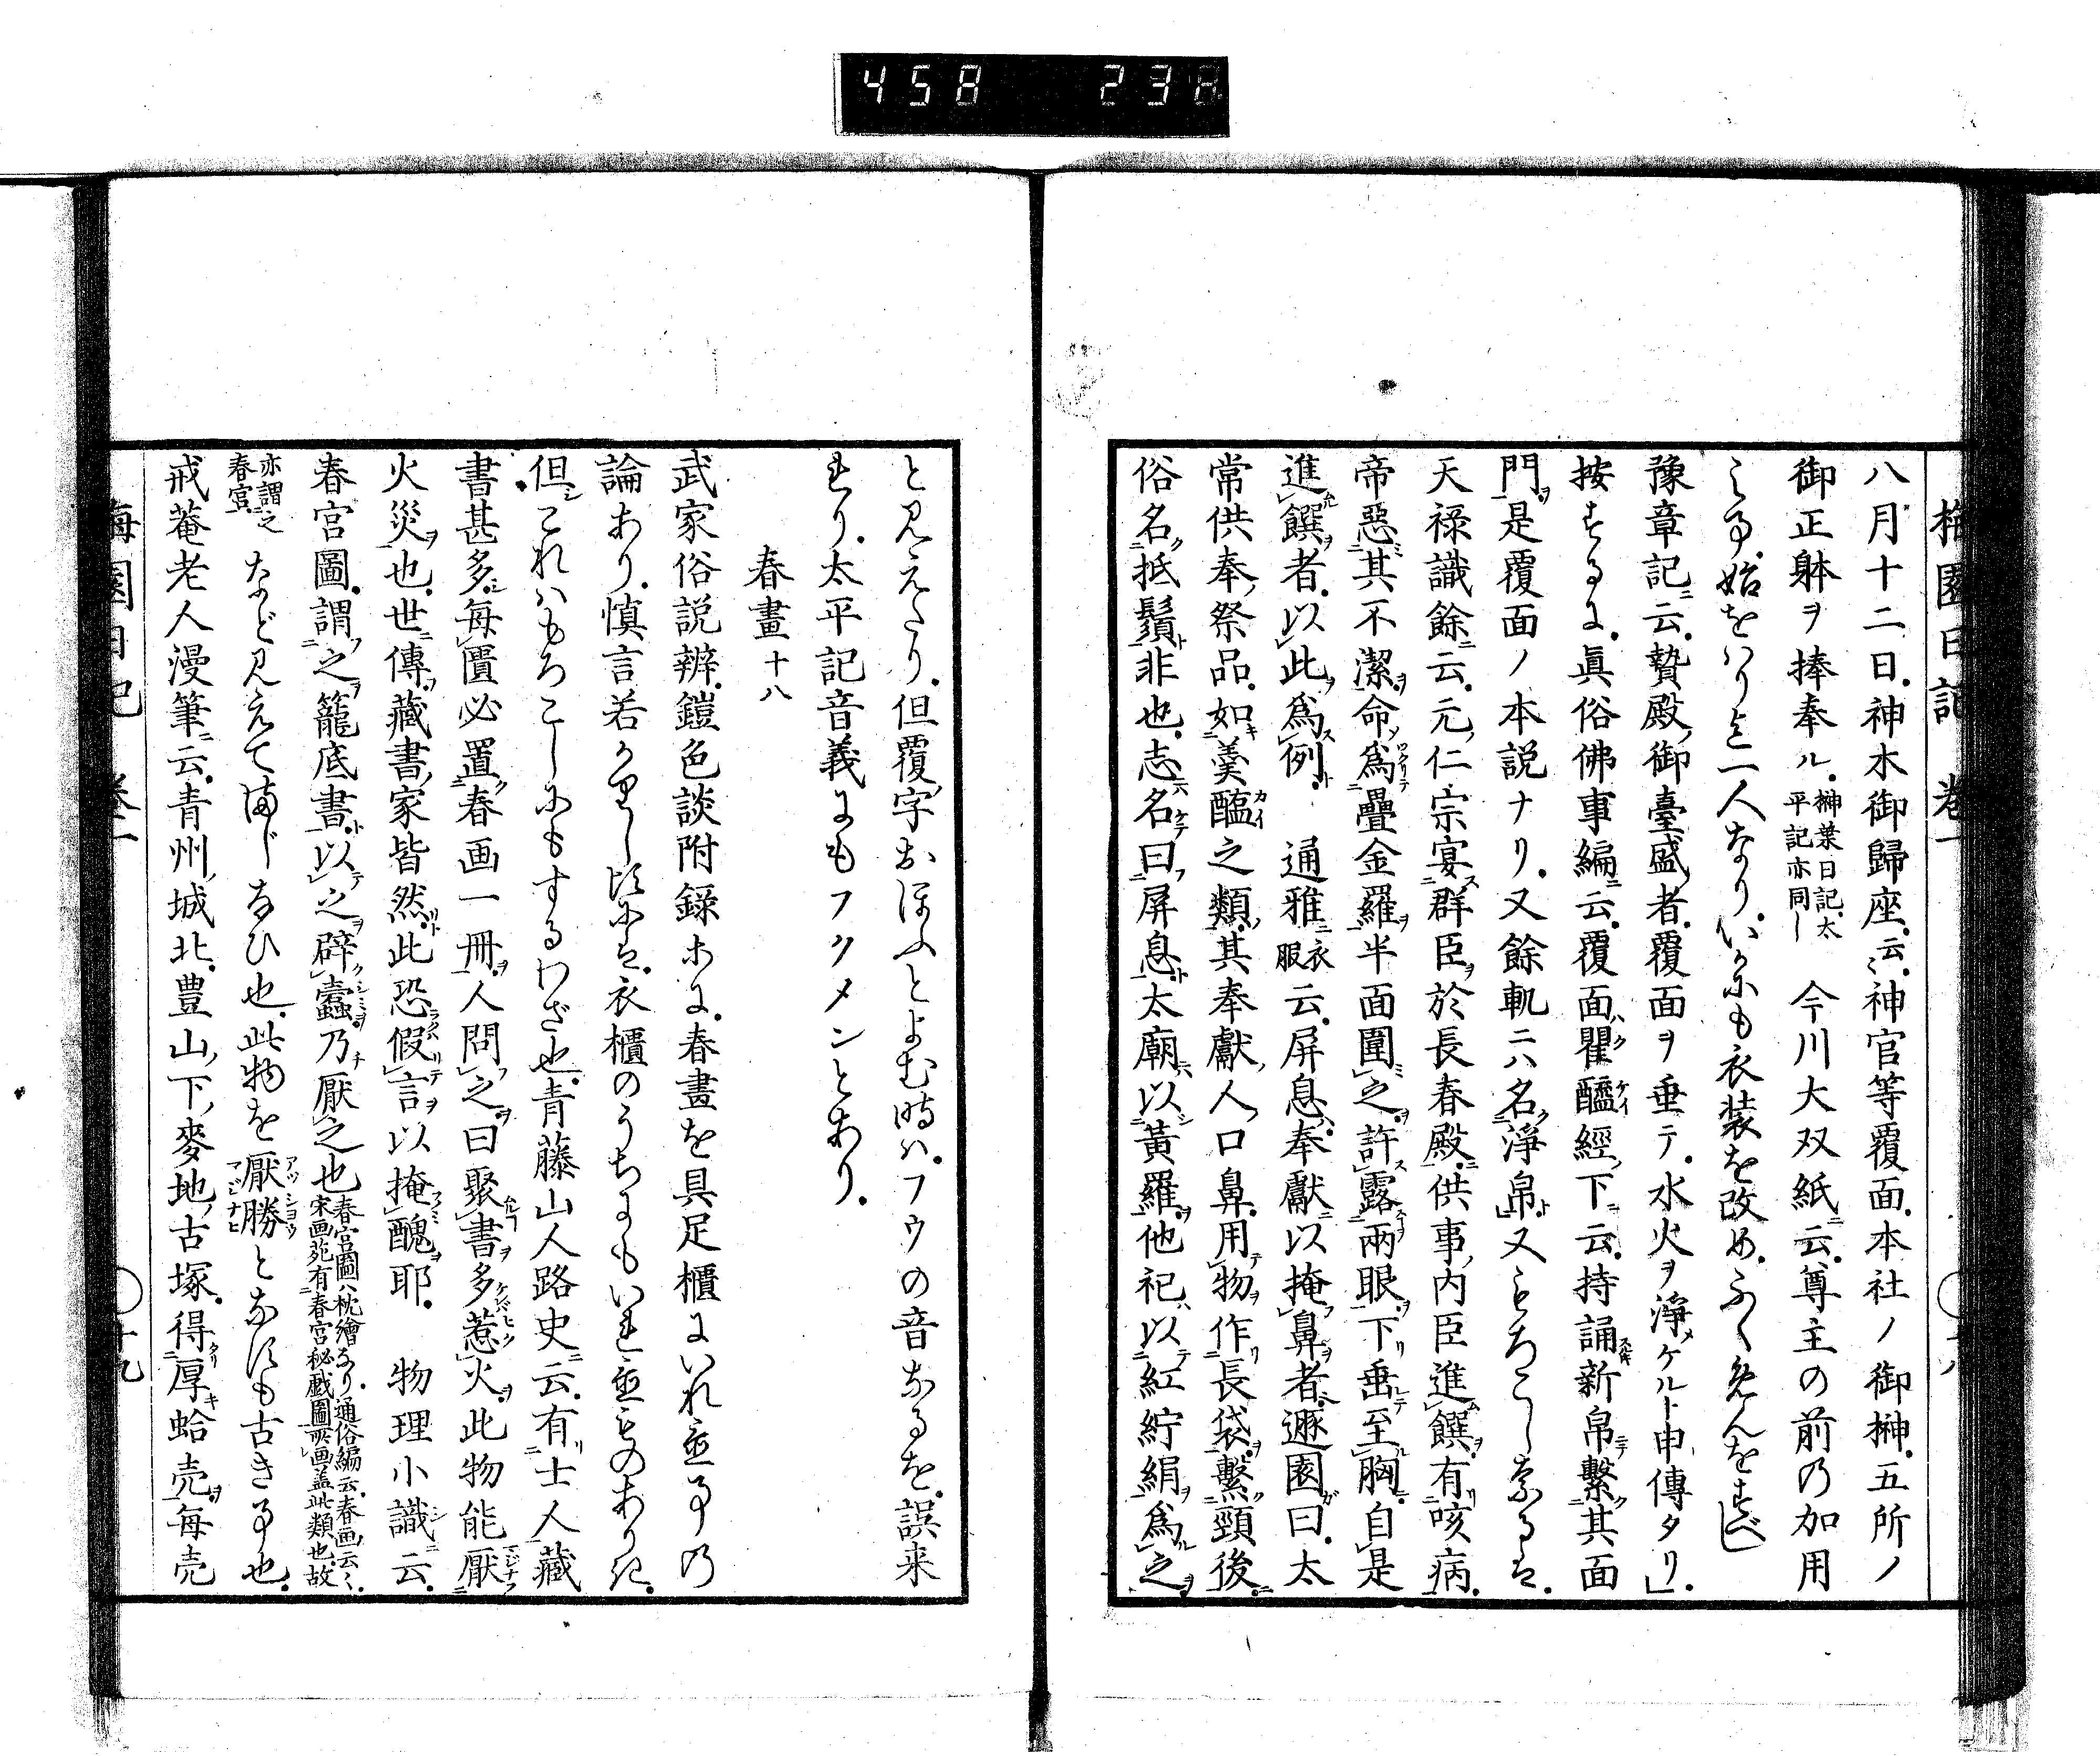 458 238
梅園日記 巻一 ○十八
八月十二日。神木御歸座。云〻。神官等覆面。本社ノ御榊。五所ノ
御正躰ヲ捧奉ル。榊葉日記。太平記亦同し 今川大双紙ニ云。尊主の前の加用
之事。始をハりを一人なり。いかにも衣装を改め。ふくめんをすべし
豫章記ニ云。贄殿ノ御臺盛者。覆面ヲ垂テ。水火ヲ淨メケルト申傳タリ」。
按するに。眞俗佛事編ニ云。覆面ハ瞿醯經ノ下ニ云。持誦新帛繫其面
門。是覆面ノ本説ナリ。又餘軌ニハ名淨帛。又もろこしなるは。
天禄識餘ニ云。元ノ仁宗宴群臣於長春殿。供事ノ内臣進饌。有咳病。
帝惡其不潔。命爲疊金羅半面圍之。許露兩眼。下垂至胸。自是
進饌者。以此爲例。 通雅ニ衣服云。屏息ハ奉獻以掩鼻者。遯園曰。太
常供奉ノ祭品。如羹醢之類。其奉獻ノ人ノ口鼻。用物作長袋。繫頸後。
俗名抵鬚非也。志名曰屏息。太廟以黃羅。他祀以紅紵絹爲之。
と見えたり。但覆ノ字おほふとよむ時ハ。フウの音なるを。誤来
れり。太平記音義にもフクメンとあり。
春畫 十八
武家俗説辨。鎧色談附録ホに。春畫を具足櫃にいれ置事の
論あり。慎言若かりし頃には。衣櫃のうちにもいれ置ものありき。
但これハもろこしにもするわざ也。青藤山人路史ニ云。有士人藏
書甚多。毎匱必置春画一冊。人問之。曰聚書多惹火。此物能厭
火災也。世傳ノ藏書ノ家皆然。此恐假言以掩醜耶。 物理小識ニ云。
春宮圖。謂之籠底書。以之辟蠹。乃厭之也 春宮圖ハ枕繪なり。通俗編云。春画云〻。宋画苑有春宮秘戯圖。所画盖此類也。故
亦謂之春宮 など見えてまじなひ也。此物を厭勝となすも古き事也。
戒菴老人漫筆ニ云。青州ノ城北。豊山ノ下ノ麥地ノ古塚。得厚蛤売。毎売
梅園日記 巻一 ○十九